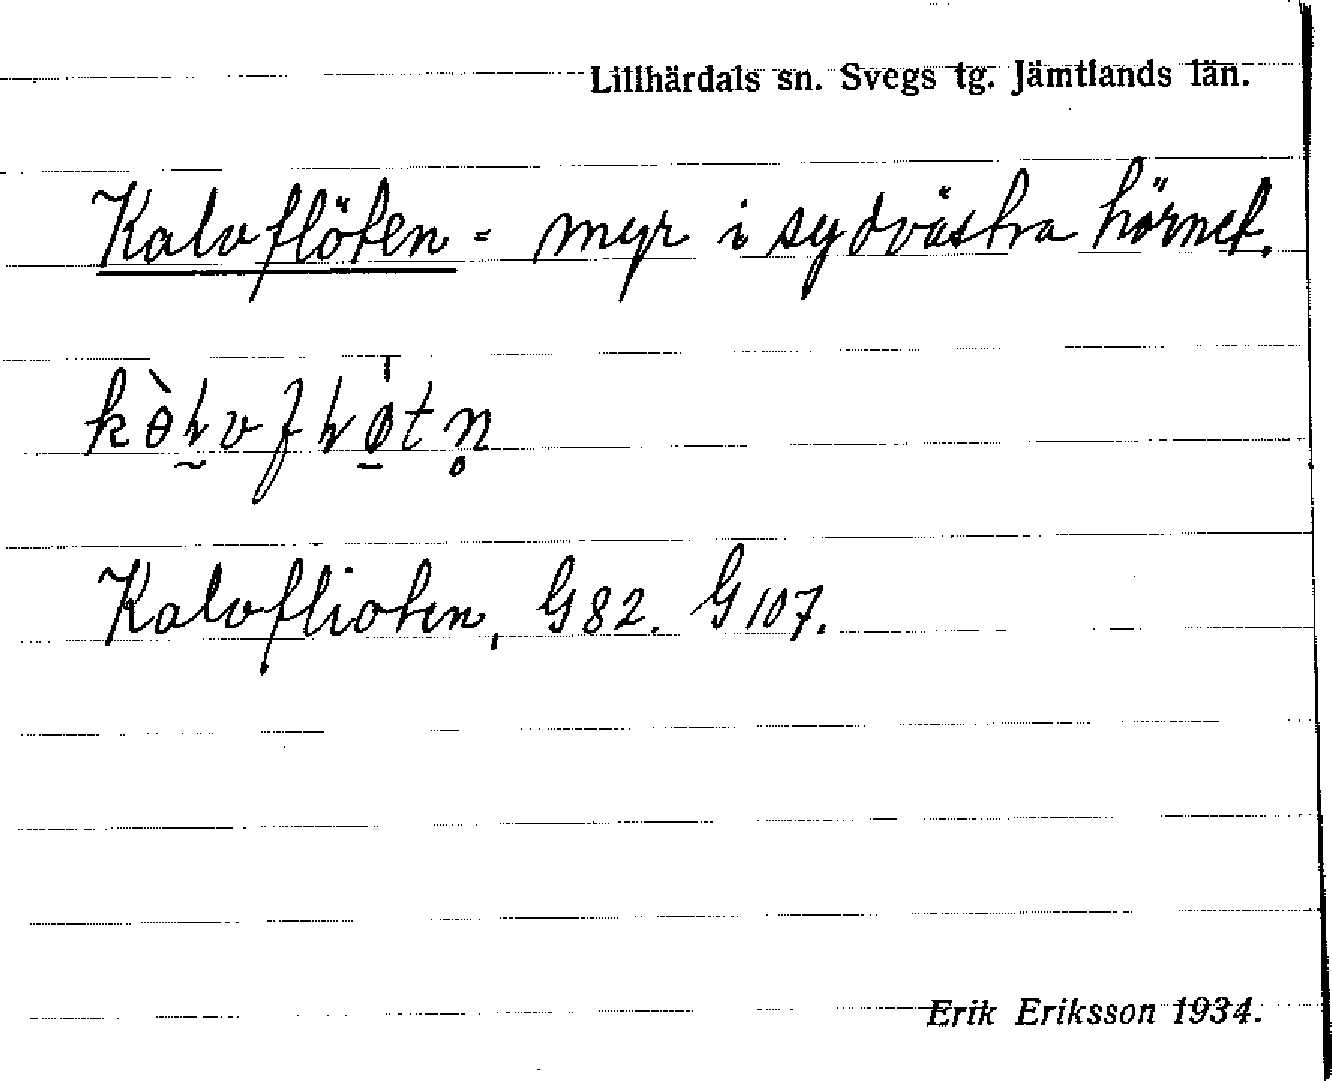 Lillhärdals sn. Svegs tg. Jämtlands län.
Kalvflöten = myr i sydvästra hörnet.
Kalvflioten, G 82. G 107.
Erik Eriksson 1934.